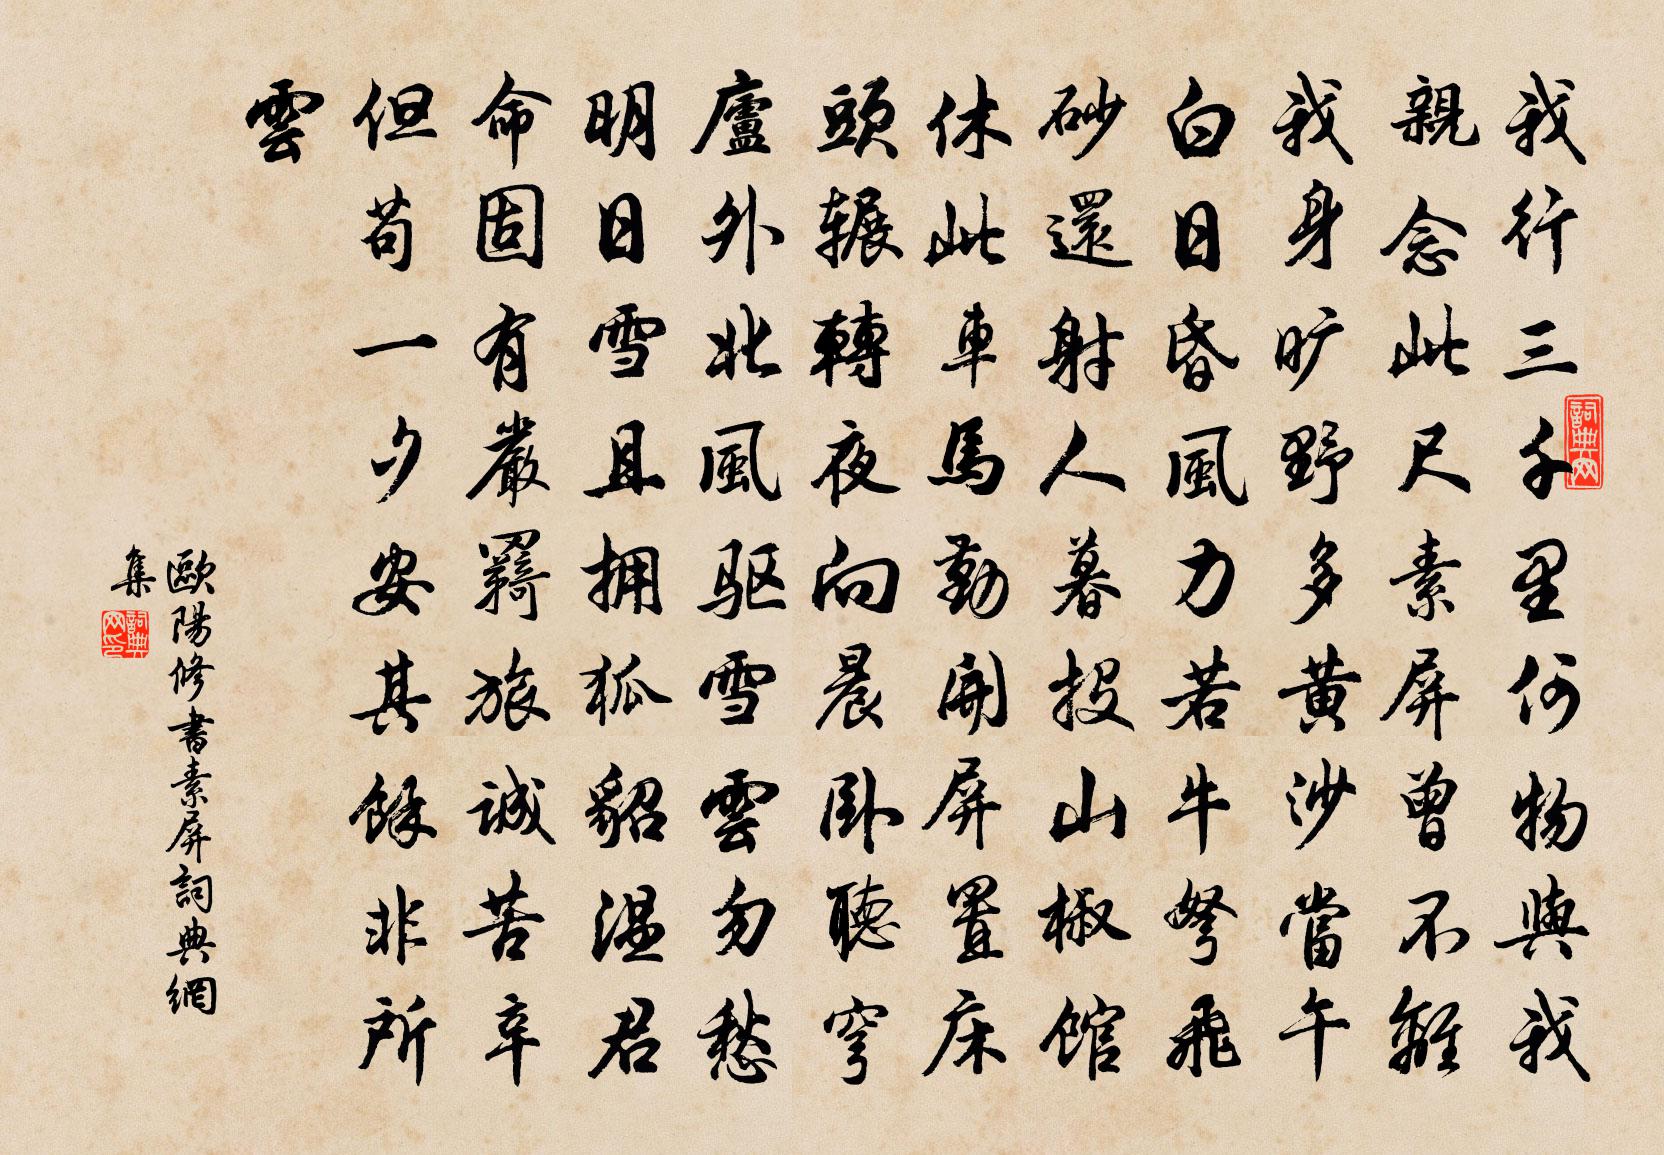 我行三千里何物與我
親念此尺素屏曾不離
我身旷野多黄沙當午
白日昏風力若牛弩飛
砂還射人暮投山椒館
休此車馬勤開屏置床
頭辗轉夜向晨臥聽穹
廬外北風驱雪雲勿愁
明日雪且拥狐貂温君
命固有嚴羇旅誠苦辛
但苟一夕安其餘非所
雲
歐陽修書素屏詞典網
集
詞典网
詞典网印